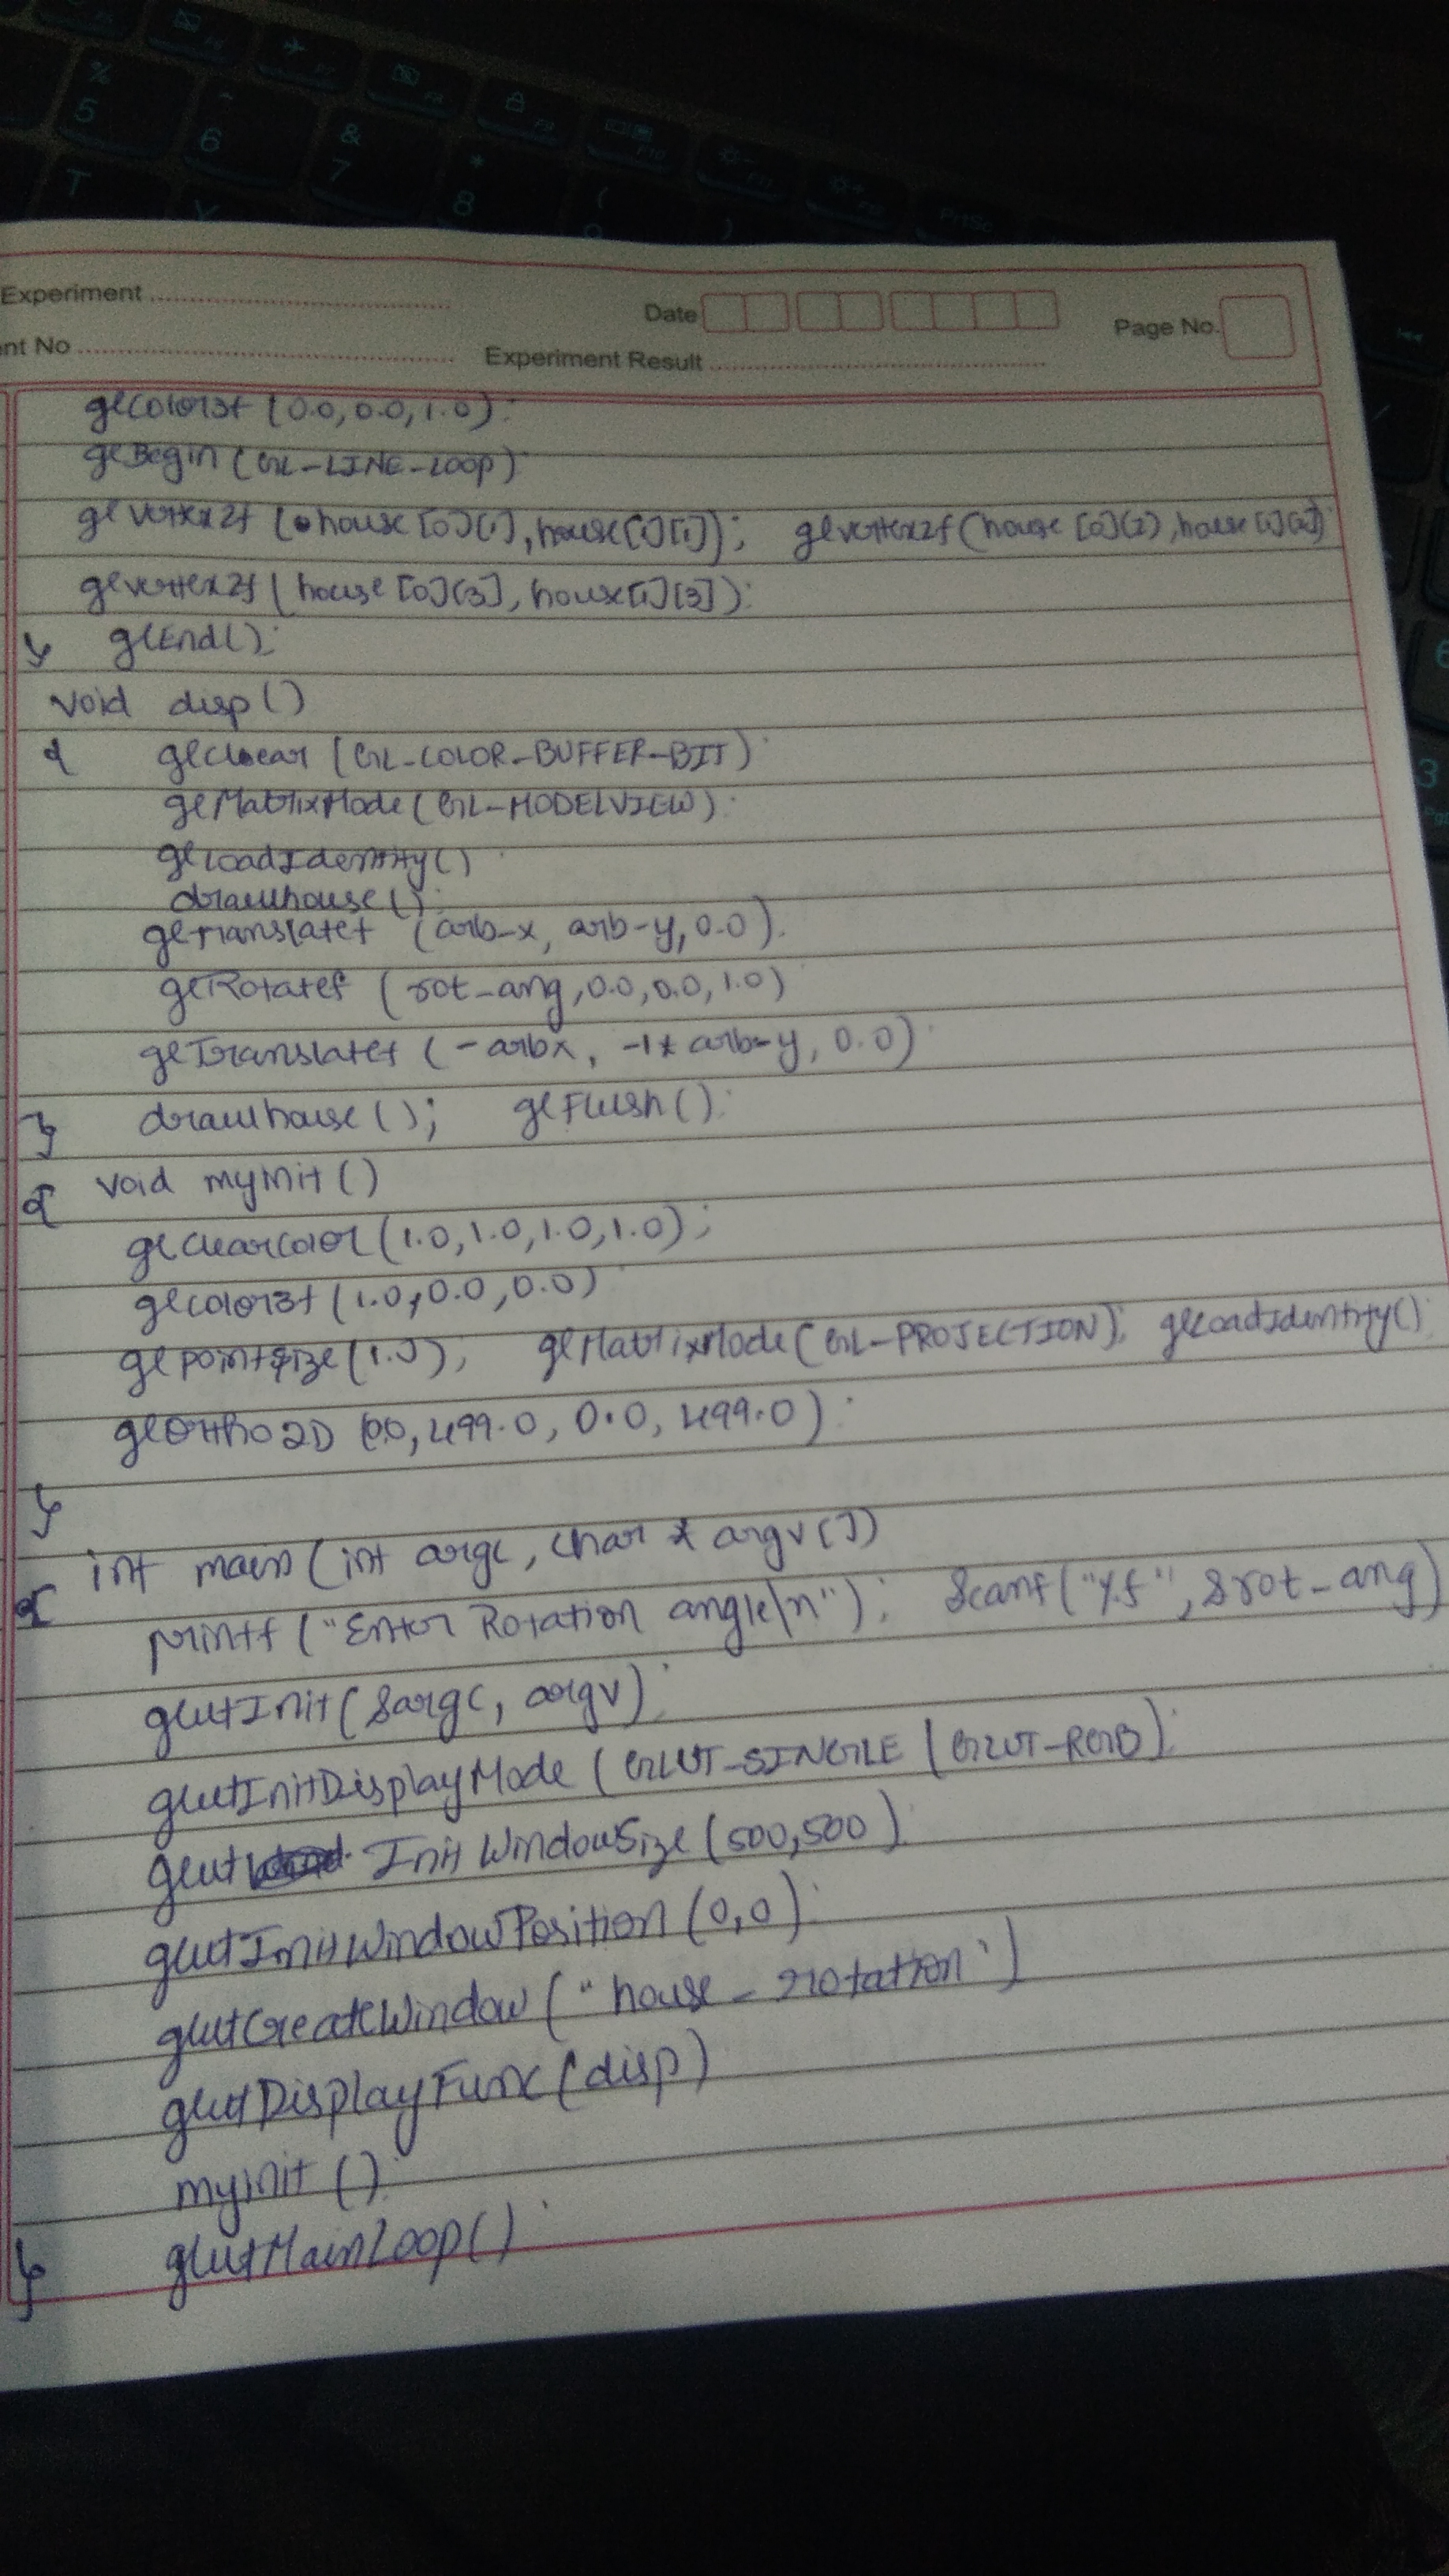 % 5 ^ 6 & 7 * 8 ( 9 )
F6 F7 F8 F9 F10 F11 F12 PrtSc
T Y
Experiment
Date
Page No.
nt No
Experiment Result
glColor3f (0.0, 0.0, 1.0);
glBegin (GL_LINE_LOOP)
glVertex2f (house[0][1], house[1][1]); glvertex2f (house [0][2], house[1][2])
glvertex2f (house [0][3], house[1][3]);
} glEnd();
void disp()
{ glClear (GL_COLOR_BUFFER_BIT);
glMatrixMode (GL_MODELVIEW);
glLoadIdentity();
drawhouse();
glTranslatef (arb-x, arb-y, 0.0);
glRotatef (rot_ang, 0.0, 0.0, 1.0)
glTranslatef (-arbx, -1* arb-y, 0.0);
} drawhouse(); glFlush();
{ void myinit()
glClearColor (1.0, 1.0, 1.0, 1.0);
glColor3f (1.0, 0.0, 0.0)
glpointsize(1.0); glMatrixMode(GL_PROJECTION); glLoadIdentity();
glOrtho2D (0.0, 499.0, 0.0, 499.0);
}
int main (int argc, char * argv[])
{ printf ("Enter Rotation angle\n"); Scanf("%f", &rot_ang)
glutInit (&argc, argv);
glutInitDisplayMode (GLUT_SINGLE | GLUT_RGB);
glut InitWindowSize (500,500);
glutInitWindowPosition (0,0);
glutCreateWindow ("house_rotation")
glutDisplayFunc (disp)
myinit();
} glutMainLoop();